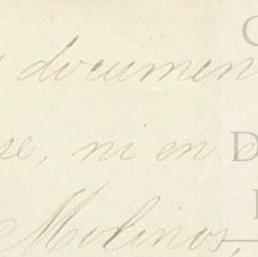 documen
se, ni en
Molinos,